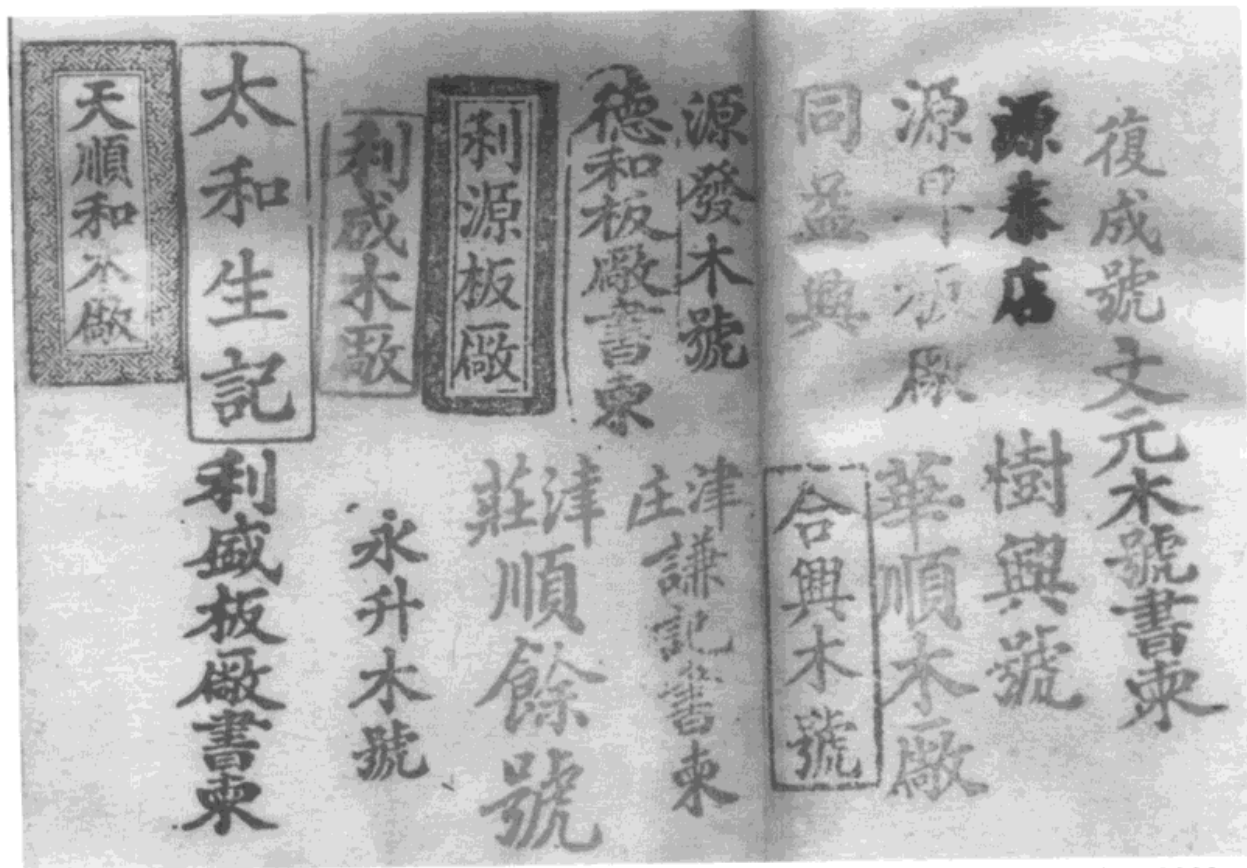 復成號
文元木號書柬
源泰店
樹興號
源昇板厰
華順木厰
同益興
合興木號
源發木號
津庄謙記書柬
德和板厰書柬
津莊順餘號
利源板厰
利成木敞
永升木號
太和生記
利盛板厰書柬
天順和木